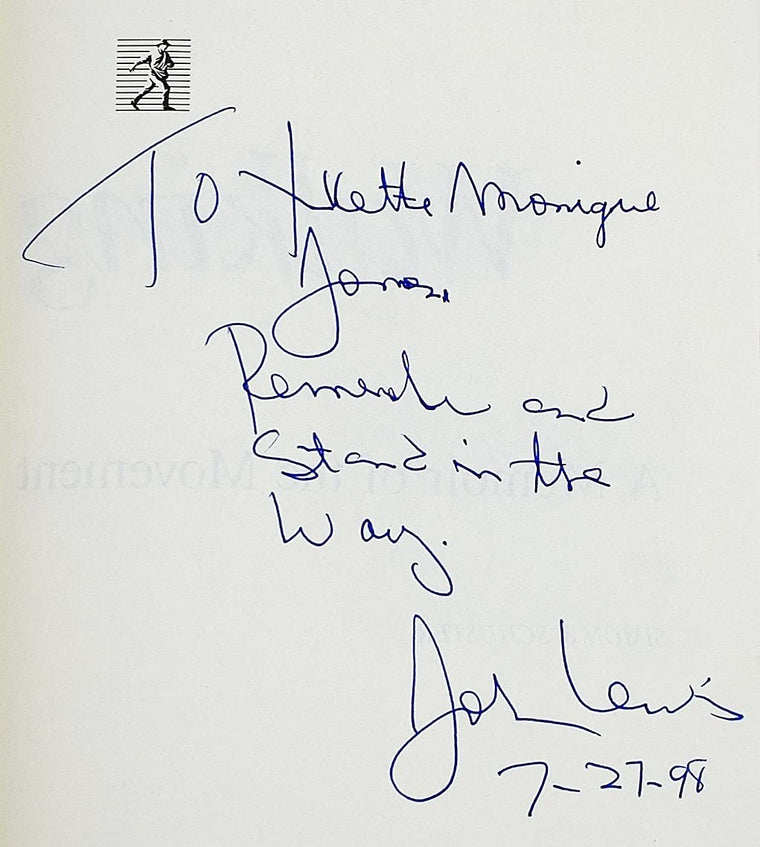 To Yvette Monique
Jones,
Remember and
Stand in the
Way.
John Lewis
7-27-98